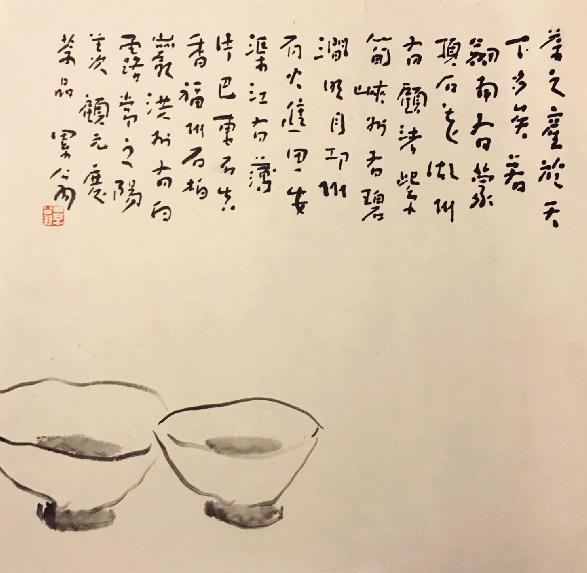 茶之產於天
下多矣若
劍南有蒙
頂石花湖州
有顧渚紫
筍峽州有碧
澗明月邛州
有火井思安
渠江有薄
片巴東有真
香福州有柏
巖洪州有白
露常之陽
羨 顧元慶
茶品